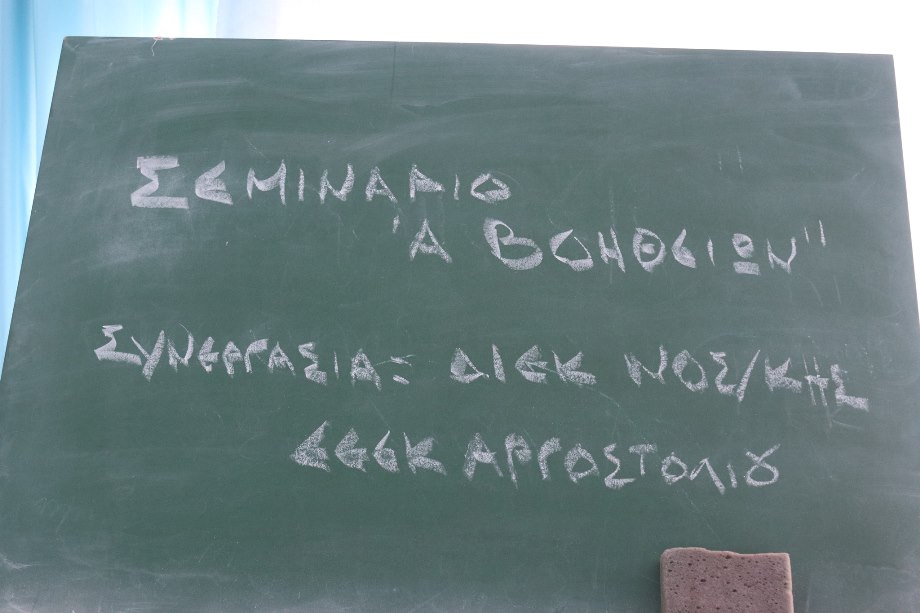 ΣΕΜΙΝΑΡΙΟ
'Α ΒΟΗΘΕΙΩΝ"
ΣΥΝΕΡΓΑΣΙΑ: ΔΙΕΚ ΝΟΣ/ΚΗΣ
ΕΕΕΚ ΑΡΓΟΣΤΟΛΙΟΥ